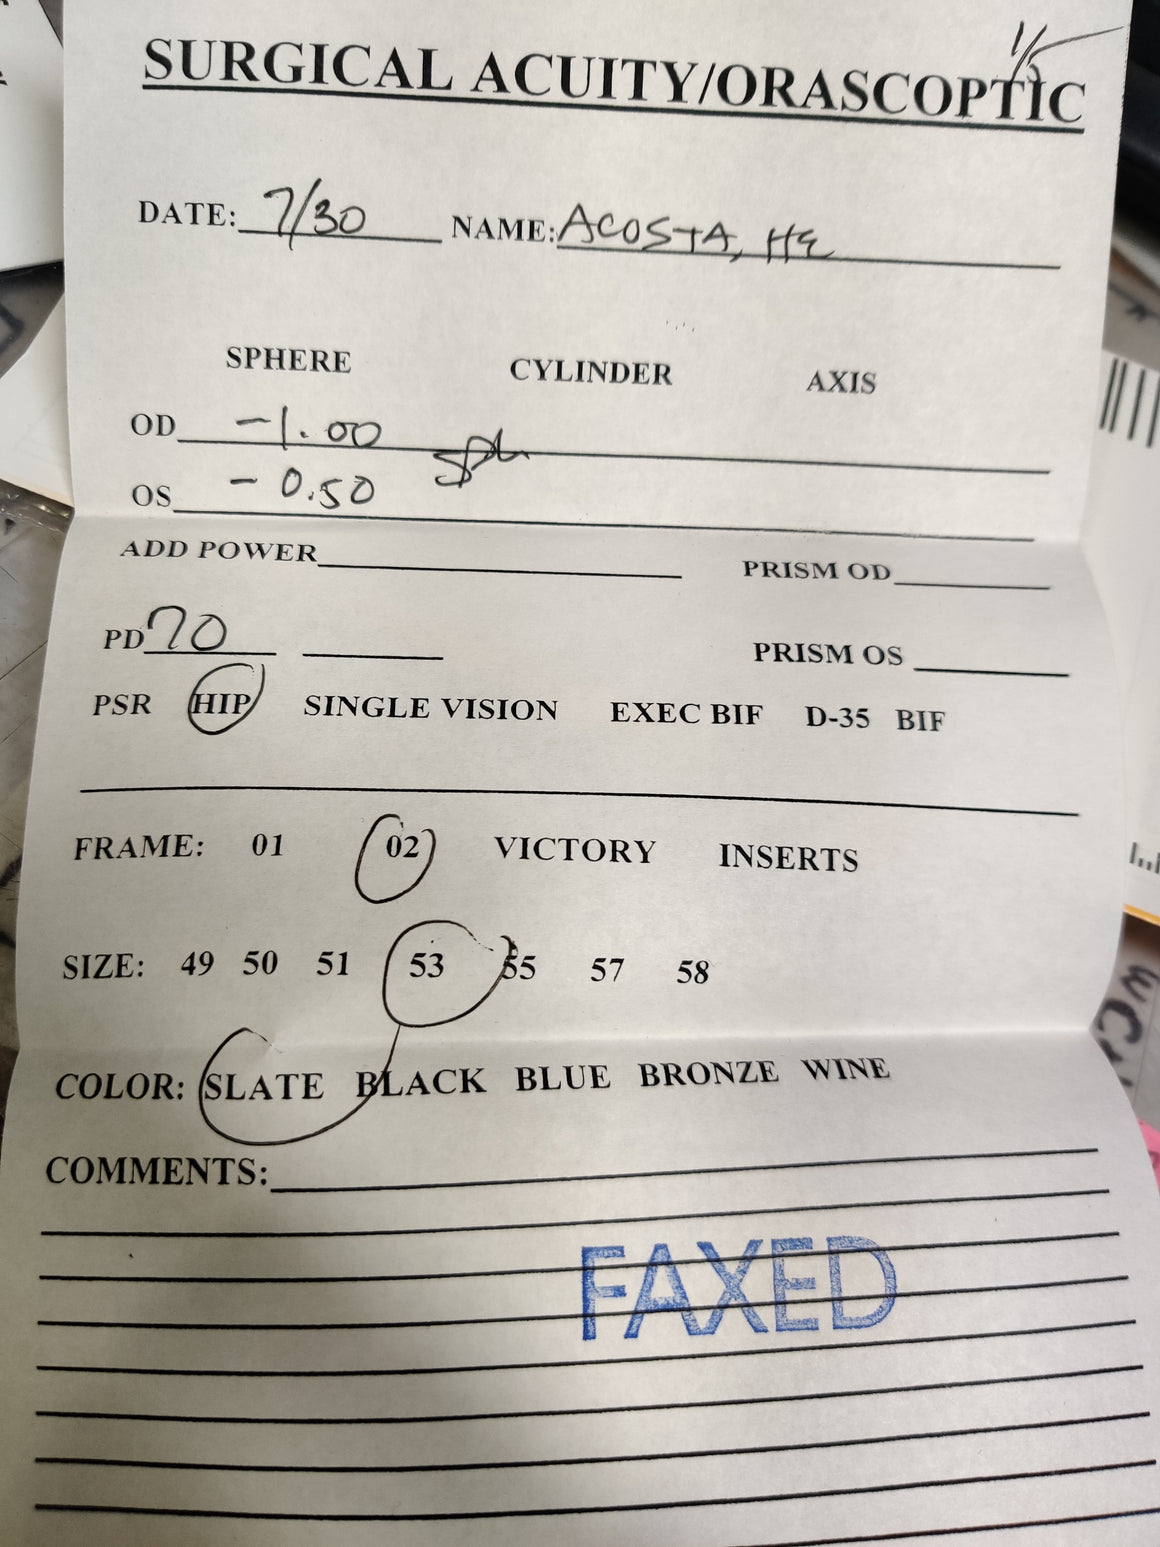 1/5
SURGICAL ACUITY/ORASCOPTIC
DATE: 7/30 NAME: ACOSTA, HE
SPHERE CYLINDER AXIS
OD -1.00 sph
OS -0.50
ADD POWER PRISM OD
PD 70 PRISM OS
PSR HIP SINGLE VISION EXEC BIF D-35 BIF
FRAME: 01 02 VICTORY INSERTS
SIZE: 49 50 51 53 55 57 58
COLOR: SLATE BLACK BLUE BRONZE WINE
COMMENTS:
FAXED